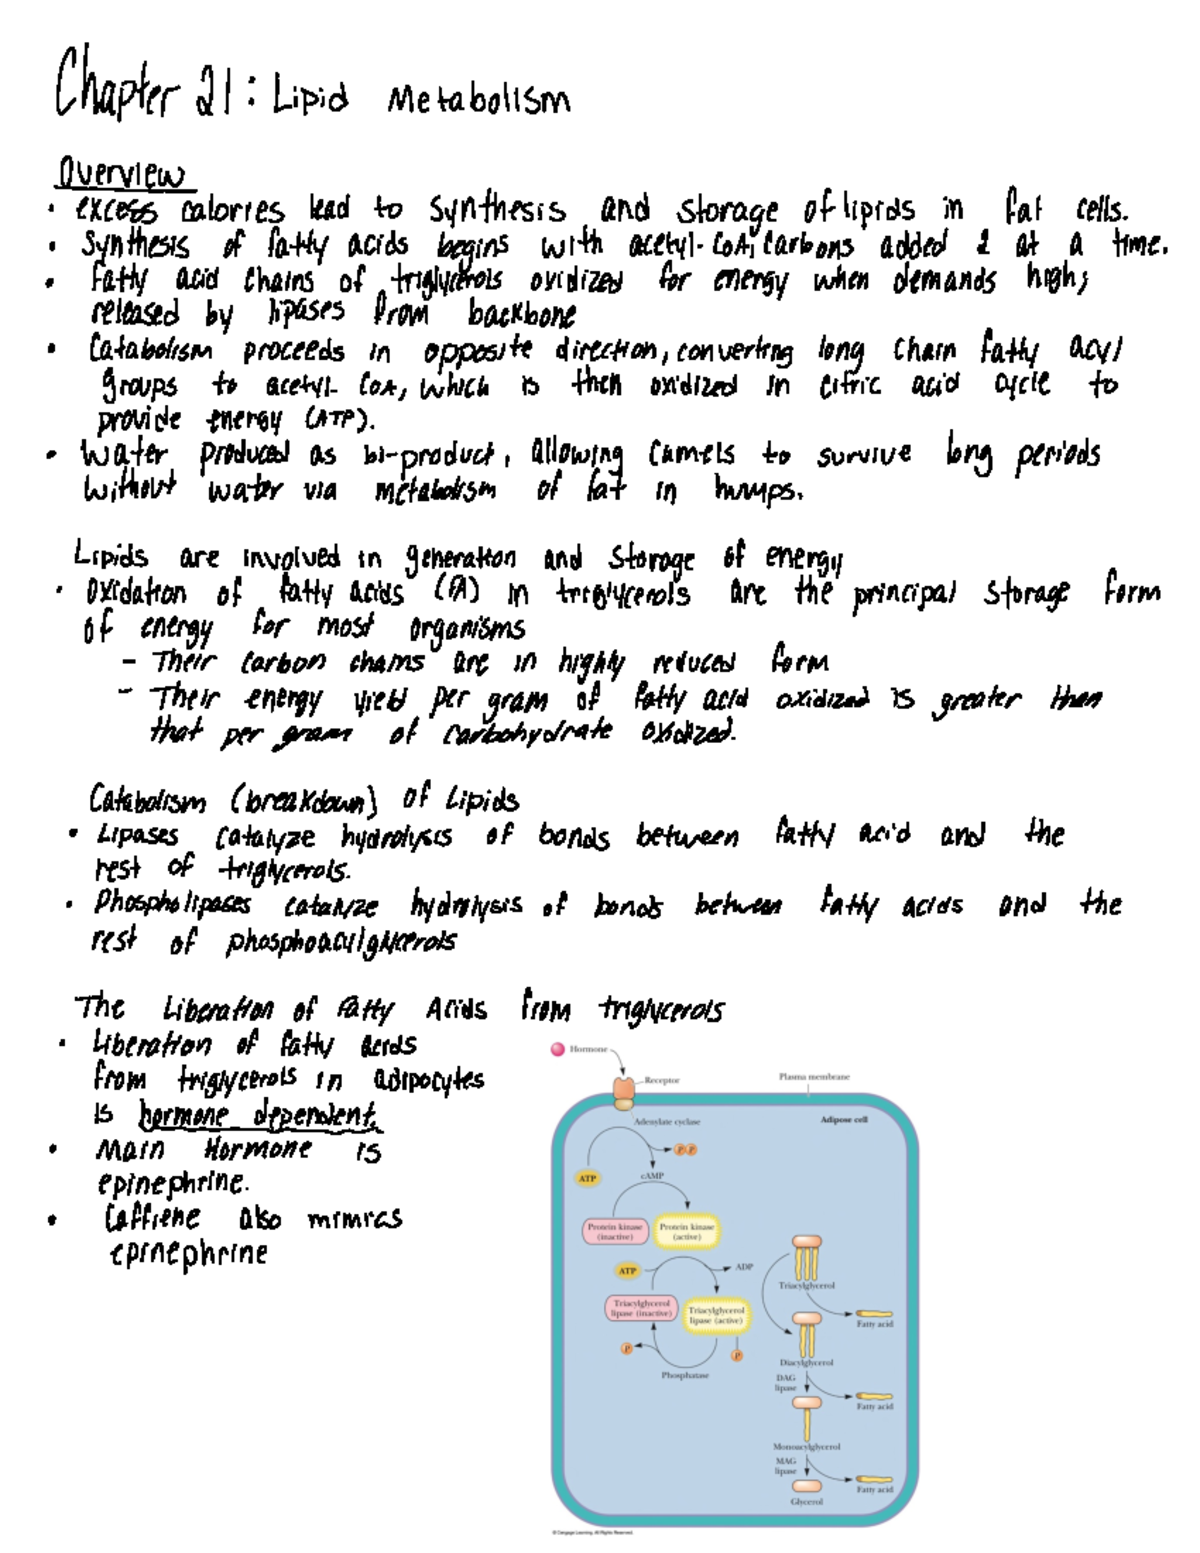 Chapter 21: Lipid Metabolism
Overview
• excess calories lead to synthesis and storage of lipids in fat cells.
• Synthesis of fatty acids begins with acetyl-CoA; carbons added 2 at a time.
• Fatty acid chains of triglycerols oxidized for energy when demands high;
released by lipases from backbone
• Catabolism proceeds in opposite direction, converting long chain fatty acyl
groups to acetyl-CoA, which is then oxidized in citric acid cycle to
provide energy (ATP).
• Water produced as bi-product, allowing camels to survive long periods
without water via metabolism of fat in humps.
Lipids are involved in generation and storage of energy
• Oxidation of fatty acids (FA) in triglycerols are the principal storage form
of energy for most organisms
– Their carbon chains are in highly reduced form
– Their energy yield per gram of fatty acid oxidized is greater than
that per gram of carbohydrate oxidized.
Catabolism (breakdown) of Lipids
• Lipases catalyze hydrolysis of bonds between fatty acid and the
rest of triglycerols.
• Phospholipases catalyze hydrolysis of bonds between fatty acids and the
rest of phosphoacylglycerols
The Liberation of Fatty Acids from triglycerols
• Liberation of fatty acids
from triglycerols in adipocytes
is hormone dependent.
• Main Hormone is
epinephrine.
• Caffiene also mimics
epinephrine
Hormone
Receptor
Plasma membrane
Adenylate cyclase
Adipose cell
P P
ATP
cAMP
Protein kinase
(inactive)
Protein kinase
(active)
ATP
ADP
Triacylglycerol
lipase (inactive)
Triacylglycerol
lipase (active)
P
P
Phosphatase
Triacylglycerol
Fatty acid
Diacylglycerol
DAG
lipase
Fatty acid
Monoacylglycerol
MAG
lipase
Fatty acid
Glycerol
© Cengage Learning. All Rights Reserved.